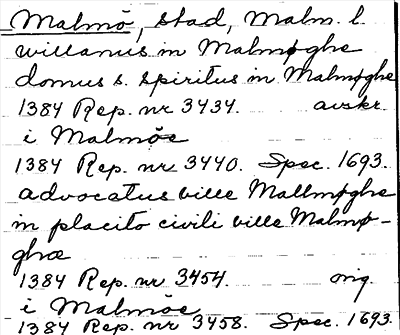 Malmö, stad, Malm. l.
willanus in Malmøghe
domus s. spiritus in Malmøghe
1384 Rep. nr 3434. avskr.
i Malmöe
1384 Rep. nr 3440. Spec. 1693.
advocatus ville Mallmøghe
in placito civili ville Malmø-
ghæ
1384 Rep. nr 3454. orig.
i Malmöe
1384 Rep. nr 3458. Spec. 1693.